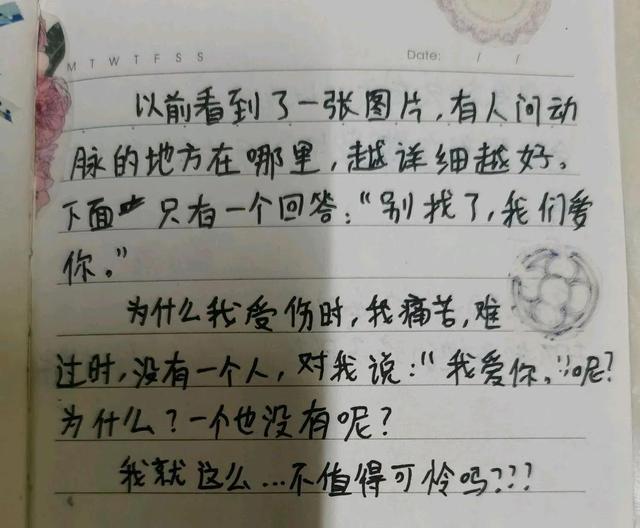 M T W T F S S Date: / /
以前看到了一张图片,有人问动
脉的地方在哪里,越详细越好。
下面 只有一个回答:“别找了,我们爱
你。”
为什么我受伤时,我痛苦,难
过时,没有一个人,对我说:“我爱你。”呢?
为什么?一个也没有呢?
我就这么...不值得可怜吗???